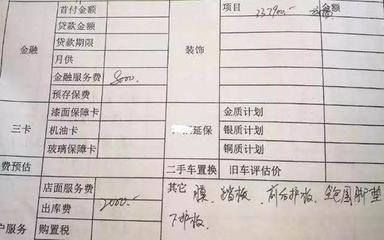 首付金额 项目 237900.- 金额
贷款金额
金融 贷款期限 装饰
月供
金融服务费 8000.-
预存保费
漆面保障卡 金质计划
三卡 机油卡 延保 银质计划
玻璃保障卡 铜质计划
费预估 二手车置换 旧车评估价
店面服务费 其它 膜、踏板、前后护板、全包围脚垫
出库费 2000.- 下护板.
户服务 购置税